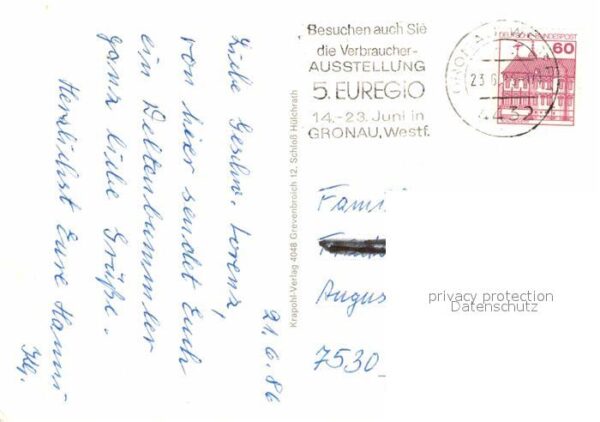 21.6.86
Liebe Geschw. Lorenz,
von hier sendet Euch
ein Deltenbummler
ganz liebe Grüße.
Herzlichst Eure Hanni
Krapohl-Verlag 4048 Grevenbroich 12, Schloß Hülchrath
Besuchen auch Sie
die Verbraucher-
AUSSTELLUNG
5. EUREGIO
14.-23. Juni in
GRONAU, Westf.
DEUTSCHE BUNDESPOST
60
23.6.
4432
Fami
Augus
7530
privacy protection
Datenschutz